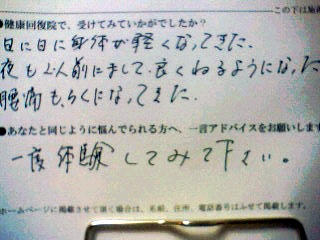 この下は施術
●健康回復院で、受けてみていかがでしたか?
日に日に身体が軽くなってきた。
夜も以前にまして、良くねるようになった
腰痛も、らくになってきた。
●あなたと同じように悩んでられる方へ、一言アドバイスをお願いします
一度体験してみて下さい。
ホームページに掲載させて頂く場合は、名前、住所、電話番号はふせて掲載します。